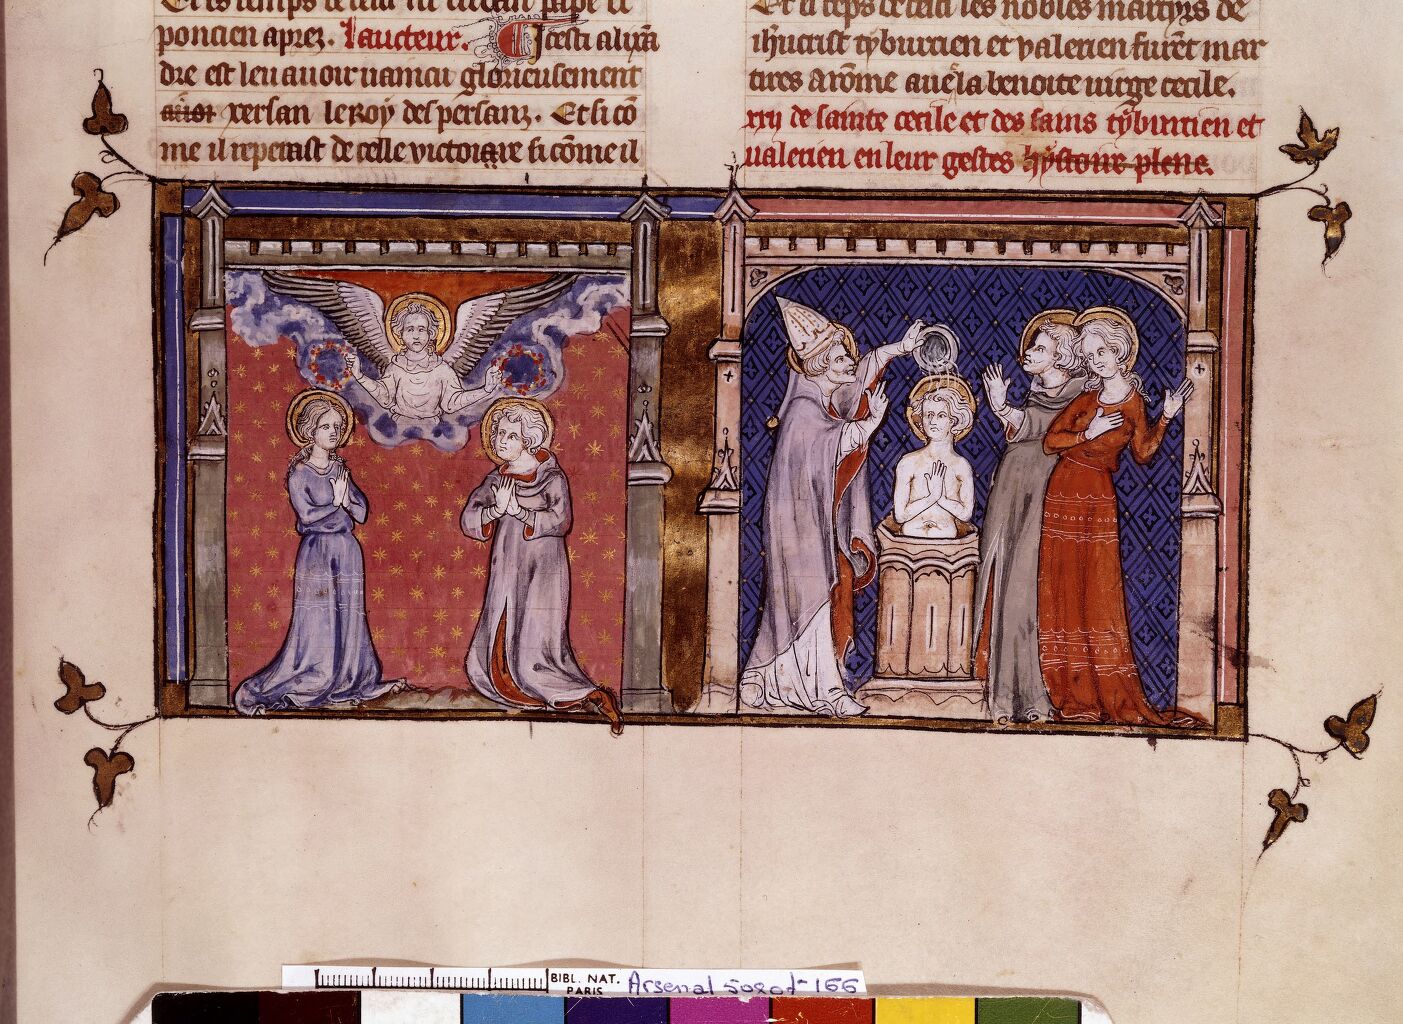 poncien aprez. Laucteur. Cesti alixā
dre est leu auoir uaincu glorieusement
xersan le Roy des persanz. Et si cō
me il reperast de celle victoire si cōme il
Et il teps de celui les nobles martyrs de
ihucrist tyburcien et valerien furēt mar
tires a rōme auec la benoite uirge cecile.
xxii de sainte cecile et des sains tyburcien et
ualerien en leur gestes hystoire plene.
BIBL. NAT.
PARIS
Arsenal 5080 f- 166